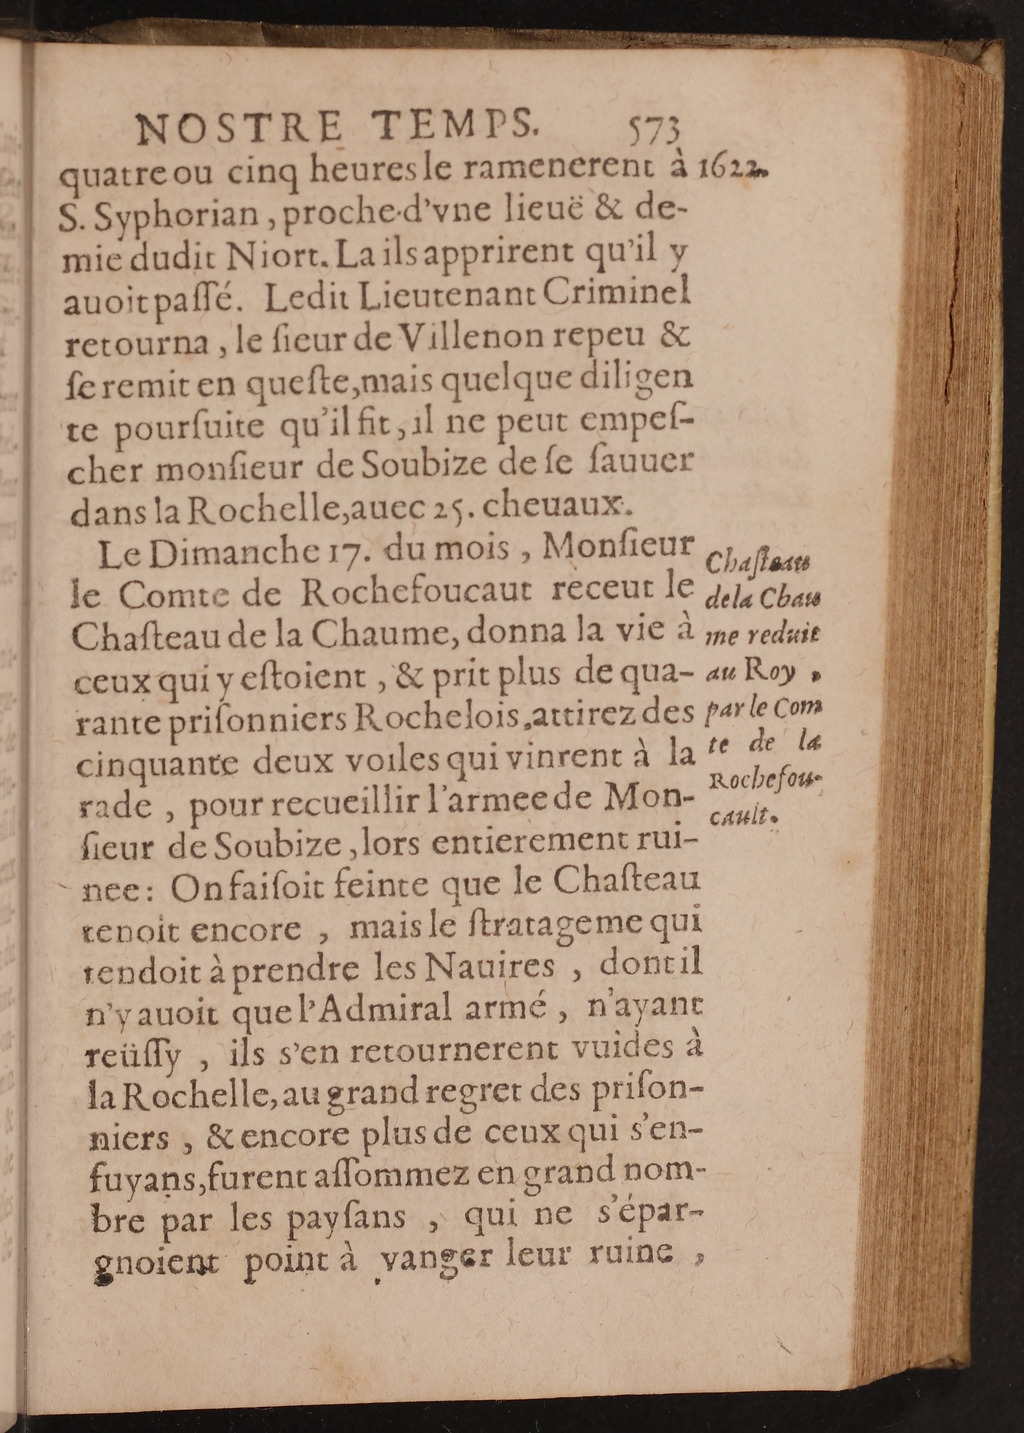 NOSTRE TEMPS. 573
quatre ou cinq heures le ramenerent à 1622.
S. Syphorian, proche d'vne lieuë & de-
mie dudit Niort. La ils apprirent qu'il y
auoit paſſé. Ledit Lieutenant Criminel
retourna, le ſieur de Villenon repeu &
ſe remit en queſte, mais quelque diligen
te pourſuite qu'il fit, il ne peut empeſ-
cher monſieur de Soubize de ſe ſauuer
dans la Rochelle, auec 25. cheuaux.
Le Dimanche 17. du mois, Monſieur
le Comte de Rochefoucaut receut le
Chaſteau de la Chaume, donna la vie à
ceux qui y eſtoient, & prit plus de qua-
rante priſonniers Rochelois, attirez des
cinquante deux voiles qui vinrent à la
rade, pour recueillir l'armee de Mon-
ſieur de Soubize, lors entierement rui-
nee: On faiſoit feinte que le Chaſteau
tenoit encore, mais le ſtratageme qui
tendoit à prendre les Nauires, dont il
n'y auoit que l'Admiral armé, n'ayant
reüſſy, ils s'en retournerent vuides à
la Rochelle, au grand regret des priſon-
niers, & encore plus de ceux qui s'en-
fuyans, furent aſſommez en grand nom-
bre par les payſans, qui ne s'épar-
gnoient point à vanger leur ruine,
Chaſteau
de la Chau
me reduit
au Roy,
par le Com
te de la
Rochefou-
cault.